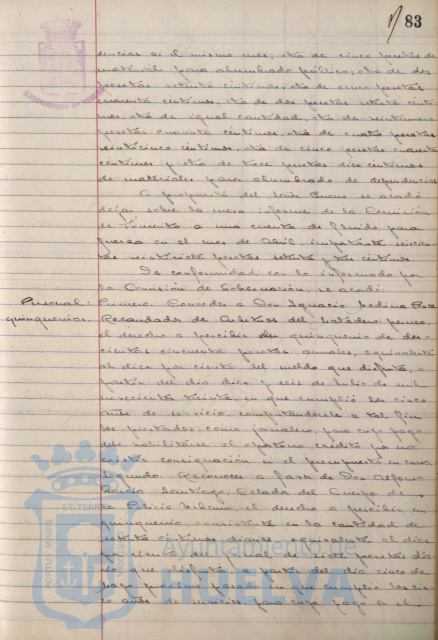 83
dencias en el mismo mes; otra de cinco pesetas de
material para alumbrado público; otra de dos
pesetas setenta céntimos; otra de cinco pesetas
cuarenta céntimos, otra de dos pesetas setenta cénti-
mos, otra de igual cantidad, otra de
pesetas cuarenta céntimos, otra de cuatro pesetas
veinticinco céntimos, otra de cinco pesetas cuarenta
céntimos y otra de trece pesetas diez céntimos
de materiales para alumbrado de dependencias
A propuesta del Señor se acordó
dejar sobre la mesa informe de la Comisión
de Fomento a una cuenta de fluido para
fuerza en el mes de Abril, importante
tas pesetas setenta y tres céntimos
De conformidad con lo informado por
la Comisión de Gobernación, se acordó:
Personal:
quinquenios.
Primero. Conceder a Don Ignacio Medina
Recaudador de Arbitrios del matadero
el derecho a percibir un quinquenio de dos-
cientas cincuenta pesetas anuales, equivalente
al diez por ciento del sueldo que disfruta, a
partir del día diez y seis de Julio de mil
novecientos treinta, en que cumplió los cinco
años de servicio, computándosele a tal fin
los prestados como jornalero, para cuyo pago
debe habilitarse el oportuno crédito ya no
existir consignación en el presupuesto en curso.
Segundo. Reconocer a favor de Don Alfonso
García Santiago, Celador del Cuerpo de
Policía Urbana, el derecho a percibir un
quinquenio consistente en la cantidad de
setenta céntimos diarios, equivalente al diez
por ciento del jornal de siete pesetas dia-
rias que disfruta, a partir del día cinco de
pasado en que cumplió los cin-
co años de servicios, para cuyo pago a el
Ayuntamiento de
HUELVA